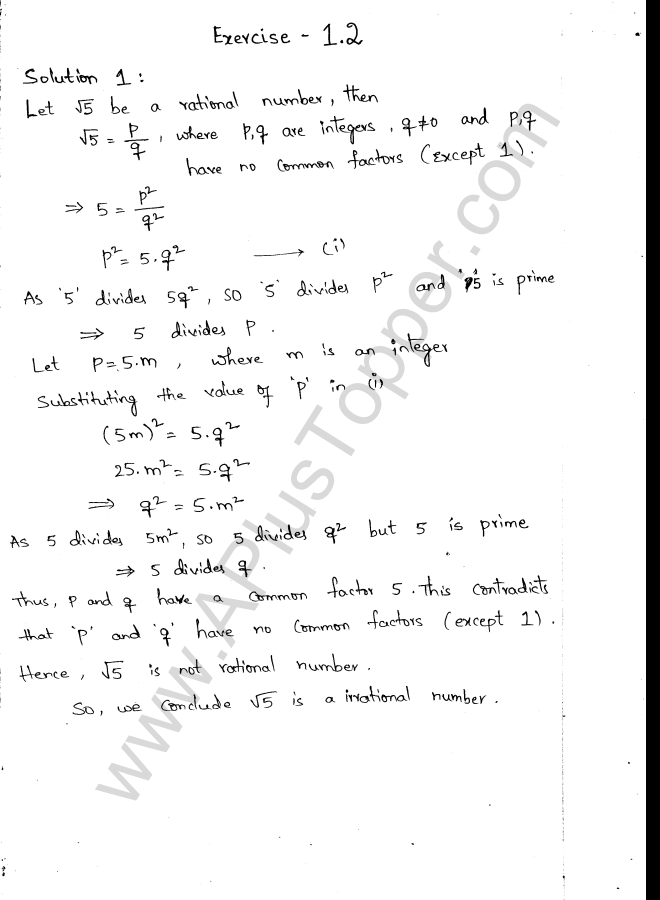 Exercise - 1.2
Solution 1:
Let √5 be a rational number, then
√5 = p/q, where p,q are integers, q≠0 and p,q
have no common factors (Except 1).
⇒ 5 = p²/q²
p² = 5.q² ⟶ (i)
As '5' divides 5q², so '5' divides p² and '5' is prime
⇒ 5 divides p.
Let p=5.m, where m is an integer
Substituting the value of 'p' in (i)
(5m)² = 5.q²
25.m² = 5.q²
⇒ q² = 5.m²
As 5 divides 5m², so 5 divides q² but 5 is prime
⇒ 5 divides q.
Thus, p and q have a common factor 5. This contradicts
that 'p' and 'q' have no common factors (except 1).
Hence, √5 is not rational number.
So, we conclude √5 is a irrational number.
www.APlusTopper.com